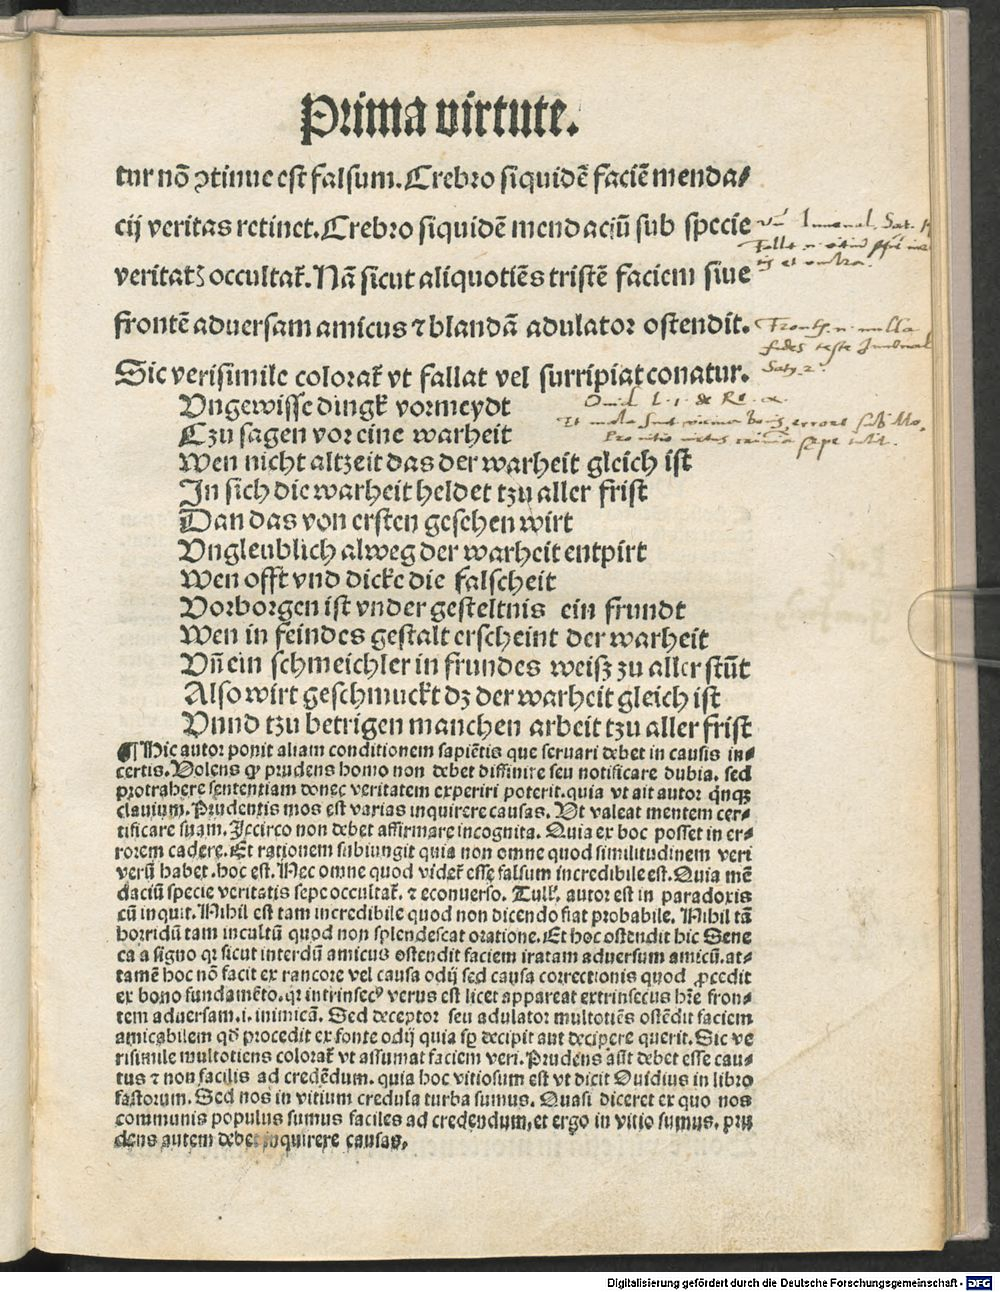 Prima virtute.
tur nō ↄtinue est falsum. Crebro siquidē faciē menda⸗
cij veritas retinet. Crebro siquidē mendaciū sub specie
veritatꝫ occultat̄. Nā sicut aliquotiēs tristē faciem siue
frontē aduersam amicus ⁊ blandā adulator ostendit.
Sic verisimile colorat̄ vt fallat vel surripiat conatur.
Vngewisse dingk vormeydt
Czu sagen vor eine warheit
Wen nicht altzeit das der warheit gleich ist
In sich die warheit heldet tzu aller frist
Dan das von ersten gesehen wirt
Vngleublich alweg der warheit entpirt
Wen offt vnd dicke die falscheit
Vorborgen ist vnder gesteltnis ein frundt
Wen in feindes gestalt erscheint der warheit
Vn̄ ein schmeichler in frundes weisz zu aller stūt
Also wirt geschmuckt dz der warheit gleich ist
Vnnd tzu betrigen manchen arbeit tzu aller frist
¶ Hic autor ponit aliam conditionem sapiētis que seruari debet in causis in⸗
certis. Volens ꝙ prudens homo non debet diffinire seu notificare dubia. sed
protrahere sententiam donec veritatem experiri poterit. quia vt ait autor q̄nqꝫ
clauium. Prudentis mos est varias inquirere causas. Vt valeat mentem cer⸗
tificare suam. Iccirco non debet affirmare incognita. Quia ex hoc posset in er⸗
rorem cadere. Et rationem subiungit quia non omne quod similitudinem veri
verij habet. hoc est. Nec omne quod videt̄ esse falsum incredibile est. Quia mē
daciū specie veritatis sepe occultat̄. ⁊ econuerso. Tull'. autor est in paradoxis
cū inquit. Nihil est tam incredibile quod non dicendo fiat probabile. Nihil tā
horridū tam incultū quod non splendescat oratione. Et hoc ostendit hic Sene
ca a signo qr sicut interdū amicus ostendit faciem iratam aduersum amicū. at⸗
tamē hoc nō facit ex rancore vel causa odij sed causa correctionis quod ꝓcedit
ex bono fundamēto. qr intrinsecꝰ verus est licet appareat extrinsecus hr̄e fron⸗
tem aduersam. i. inimicā. Sed deceptor seu adulator multotiēs ostēdit faciem
amicabilem qd̄ procedit ex fonte odij quia sꝑ decipit aut decipere querit. Sic ve
risimile multotiens colorat̄ vt assumat faciem veri. Prudens aūt debet esse cau⸗
tus ⁊ non facilis ad credēdum. quia hoc vitiosum est vt dicit Ouidius in libro
fastorum. Sed nos in vitium credula turba sumus. Quasi diceret ex quo nos
communis populus sumus faciles ad credendum, et ergo in vitio sumus. pru
dens autem debet inquirere causas,
Iuuenal. Sat.
Fallit n. vitiū
et vmbra.
Frontis n. nulla
fides teste Iuuenal
Saty. 2.
Ouid. L. 1. de Re. a.
Et mala sunt vicina bonis, errore sub illo,
Pro vitio virtus crimina sepe tulit.
Digitalisierung gefördert durch die Deutsche Forschungsgemeinschaft - DFG